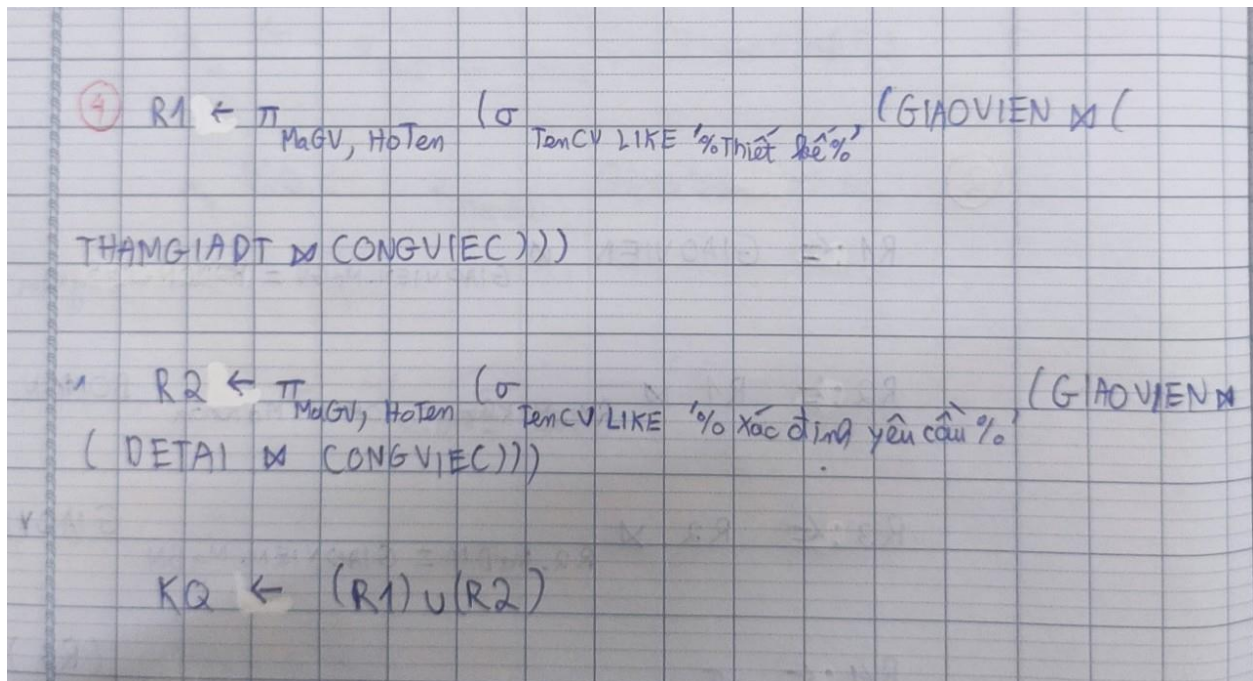 ④ R1 ← π MaGV, HoTen (σ TenCV LIKE '%Thiết kế%' (GIAOVIEN ⋈ (
THAMGIADT ⋈ CONGVIEC)))
R2 ← π MaGV, HoTen (σ TenCV LIKE '% Xác định yêu cầu %' (GIAOVIEN ⋈
( DETAI ⋈ CONGVIEC)))
KQ ← (R1) ∪ (R2)